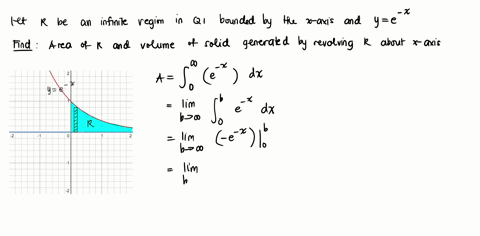 Let R be an infinite regim in Q1 bounded by the x-axis and y = e^{-x}
Find : Area of R and volume of solid generated by revolving R about x-axis
y = e^{-x}
R
-2 -1 0 1 2
2
1
-1
-2
A = ∫_0^∞ (e^{-x}) dx
= lim_{b→∞} ∫_0^b e^{-x} dx
= lim_{b→∞} (-e^{-x}) |_0^b
= lim_b